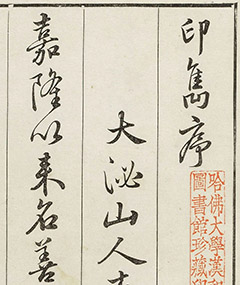 印雋序
大泌山人李
嘉隆以來名善
哈佛大學漢和
圖書館珍藏印